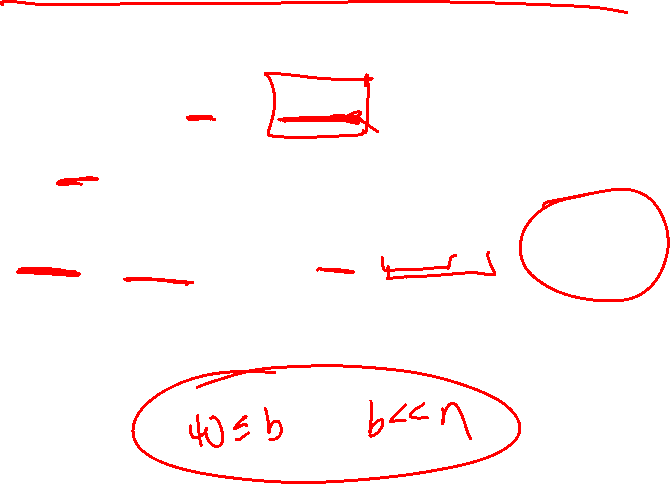 40 ≤ b b << n